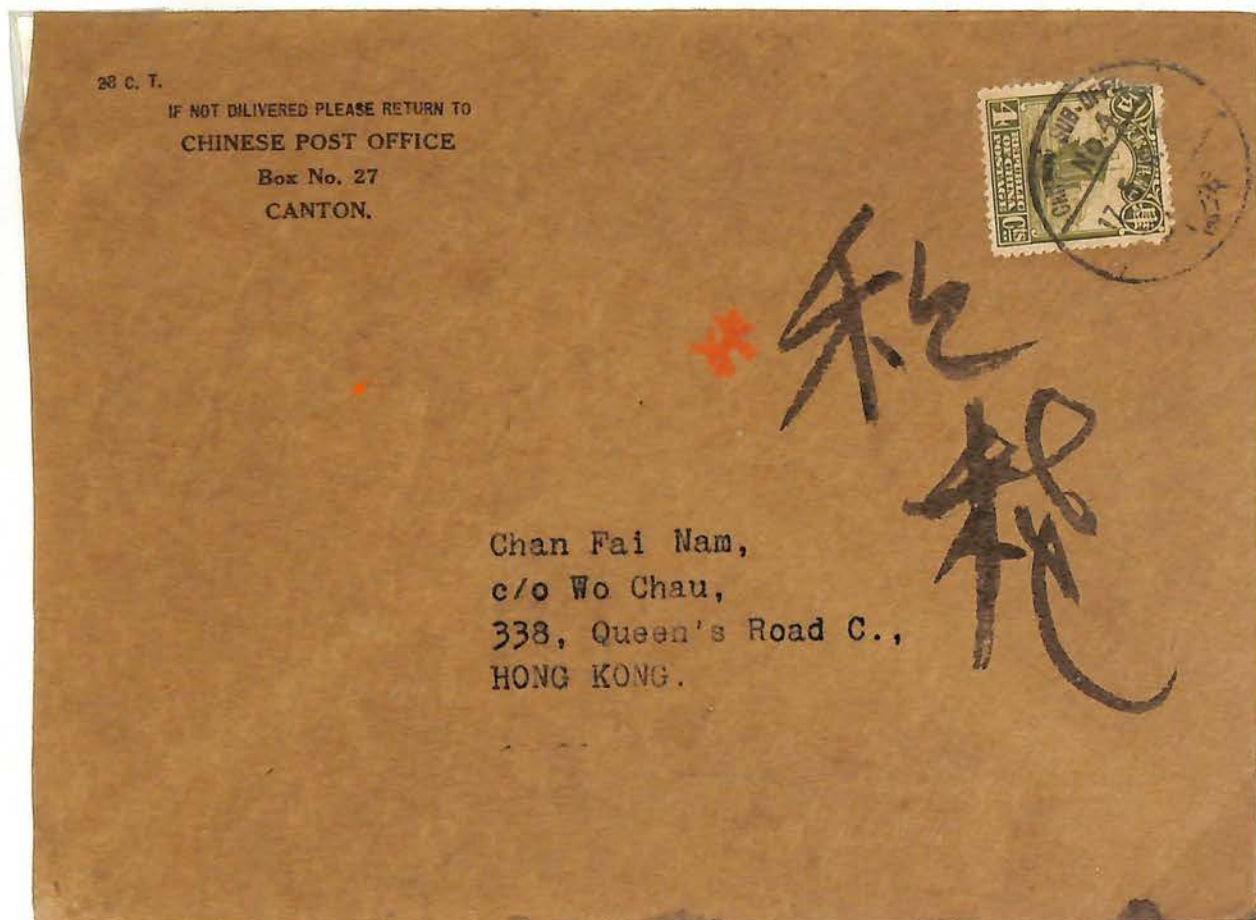 28 C. T.
IF NOT DILIVERED PLEASE RETURN TO
CHINESE POST OFFICE
Box No. 27
CANTON.
4
REPUBLIC
OF CHINA
POSTAGE
CTS
No. 4
17
Chan Fai Nam,
c/o Wo Chau,
338, Queen's Road C.,
HONG KONG.